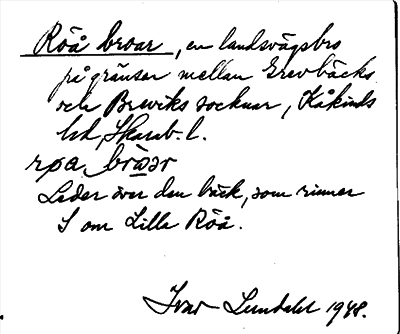 Röå broar, en landsvägsbro
på gränsen mellan Grevbäcks
och Breviks socknar, Kåkinds
hd, Skarab. l.
rɷa, brɷar
Leder över den bäck, som rinner
S om Lilla Röå.
Ivar Lundahl 1948.